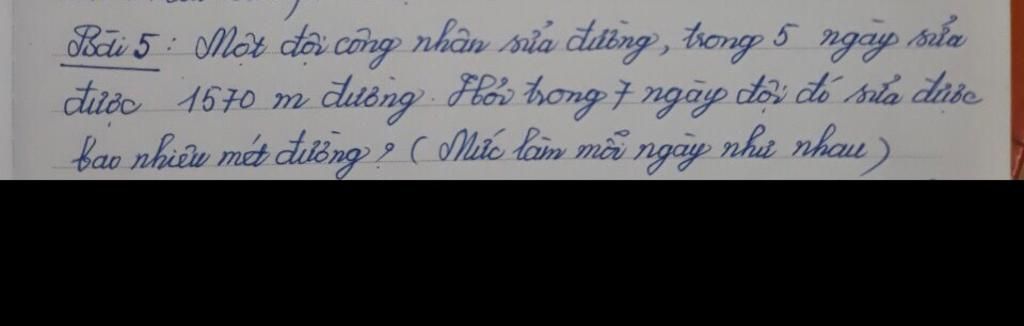 Bài 5: Một đội công nhân sửa đường, trong 5 ngày sửa
được 1570 m đường. Hỏi trong 7 ngày đội đó sửa được
bao nhiêu mét đường? (Mức làm mỗi ngày như nhau)